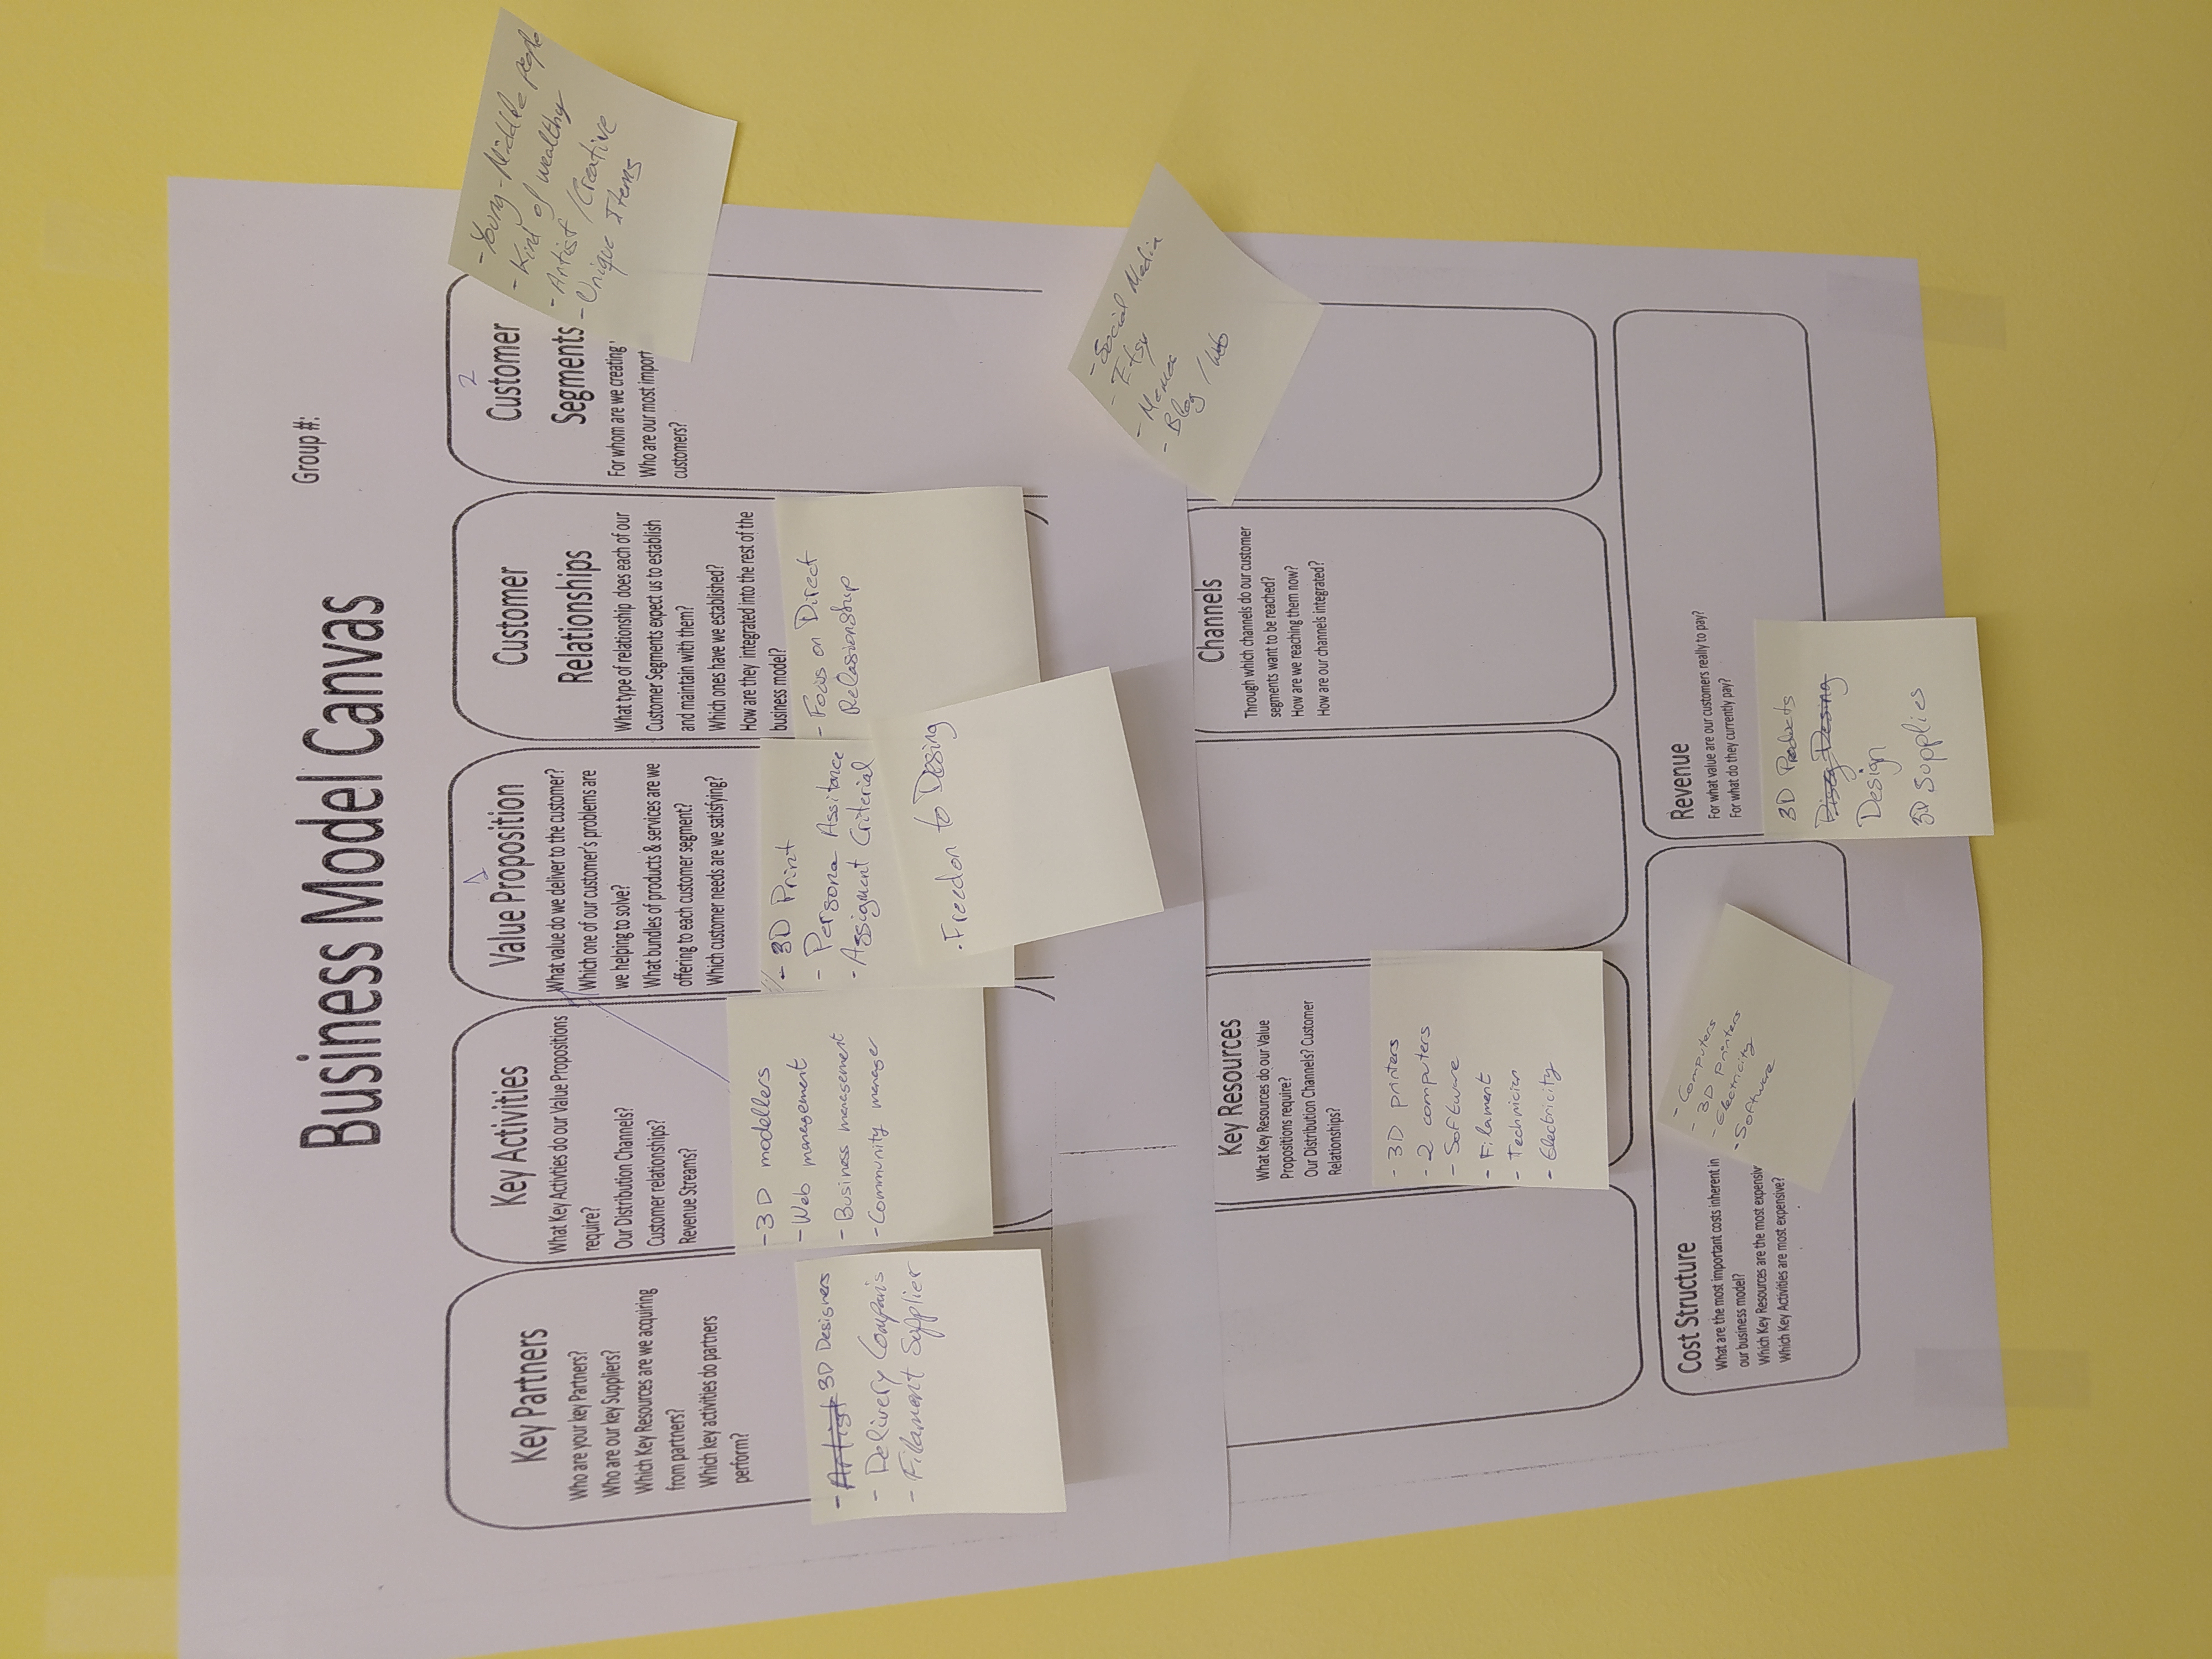 Business Model Canvas
Group #:
Key Partners
Who are your key Partners?
Who are our key Suppliers?
Which Key Resources are we acquiring
from partners?
Which key activities do partners
perform?
- Artist 3D Designers
- Delivery Companis
- Filament Supplier
Key Activities
What Key Activties do our Value Propositions
require?
Our Distribution Channels?
Customer relationships?
Revenue Streams?
- 3D modellers
- Web management
- Business management
- Community manager
1
Value Proposition
What value do we deliver to the customer?
Which one of our customer's problems are
we helping to solve?
What bundles of products & services are we
offering to each customer segment?
Which customer needs are we satisfying?
- 3D Print
- Persona Assitance
- Assigment Criterial
. Freedon to Desing
Customer
Relationships
What type of relationship does each of our
Customer Segments expect us to establish
and maintain with them?
Which ones have we established?
How are they integrated into the rest of the
business model?
- Focus on Direct
Relasionship
2
Customer
Segments
For whom are we creating
Who are our most import
customers?
- Young - Middle people
- Kind of wealthy
- Artist / Creative
- Unique Items
Key Resources
What Key Resources do our Value
Propositions require?
Our Distribution Channels? Customer
Relationships?
- 3D printers
- 2 computers
- Software
- Filament
- Technician
- Electricity
Channels
Through which channels do our customer
segments want to be reached?
How are we reaching them now?
How are our channels integrated?
- Social Media
- Etsy
- Blog / Web
Cost Structure
What are the most important costs inherent in
our business model?
Which Key Resources are the most expensiv
Which Key Activities are most expensive?
- Computers
- 3D printers
- Electricity
- Software
Revenue
For what value are our customers really to pay?
For what do they currently pay?
3D Products
Desing
Design
3D Supplies